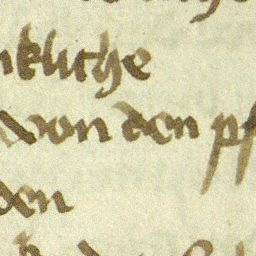 nkliche
von den pf
den